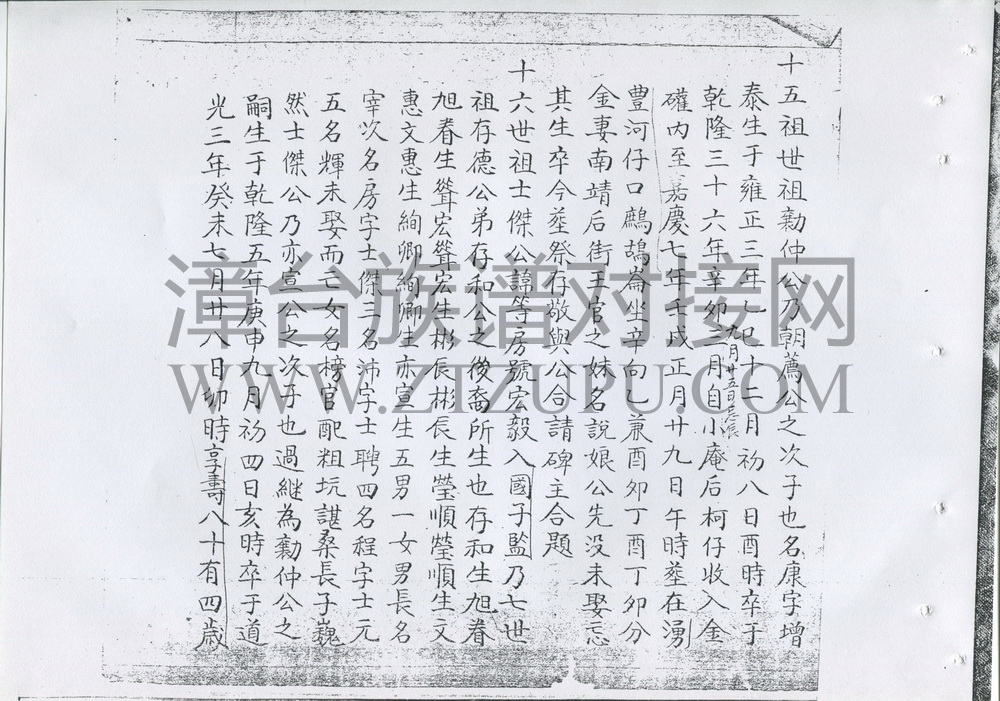 十五祖世祖勷仲公乃朝薦公之次子也名康字增
泰生于雍正三年乙巳十二月初八日酉時卒于
乾隆三十六年辛卯二月自小庵后柯仔收入金
九月廿五日忌辰
礶内至嘉慶七年壬戌正月廿九日午時塟在湧
豐河仔口鷓鴣崙坐辛向乙兼酉卯丁酉丁卯分
金妻南靖后街王官之妹名說娘公先没未娶忘
其生卒今塟祭存敬與公合請碑主合題
十六世祖士傑公諱等房號宏毅入國子監乃七世
祖存德公弟存和公之後裔所生也存和生旭眷
旭眷生聳宏聳宏生彬長彬長生瑩順瑩順生文
惠文惠生絢卿絢卿生亦宣生五男一女男長名
宰次名房字士傑三名沛字士聘四名程字士元
五名輝未娶而亡女名榜官配粗坑諶桑長子巍
然士傑公乃亦宣公之次子也過継為勷仲公之
嗣生于乾隆五年庚申九月初四日亥時卒于道
光三年癸未七月廿八日卯時享壽八十有四歲
漳台族谱对接网
WWW.ZTZUPU.COM